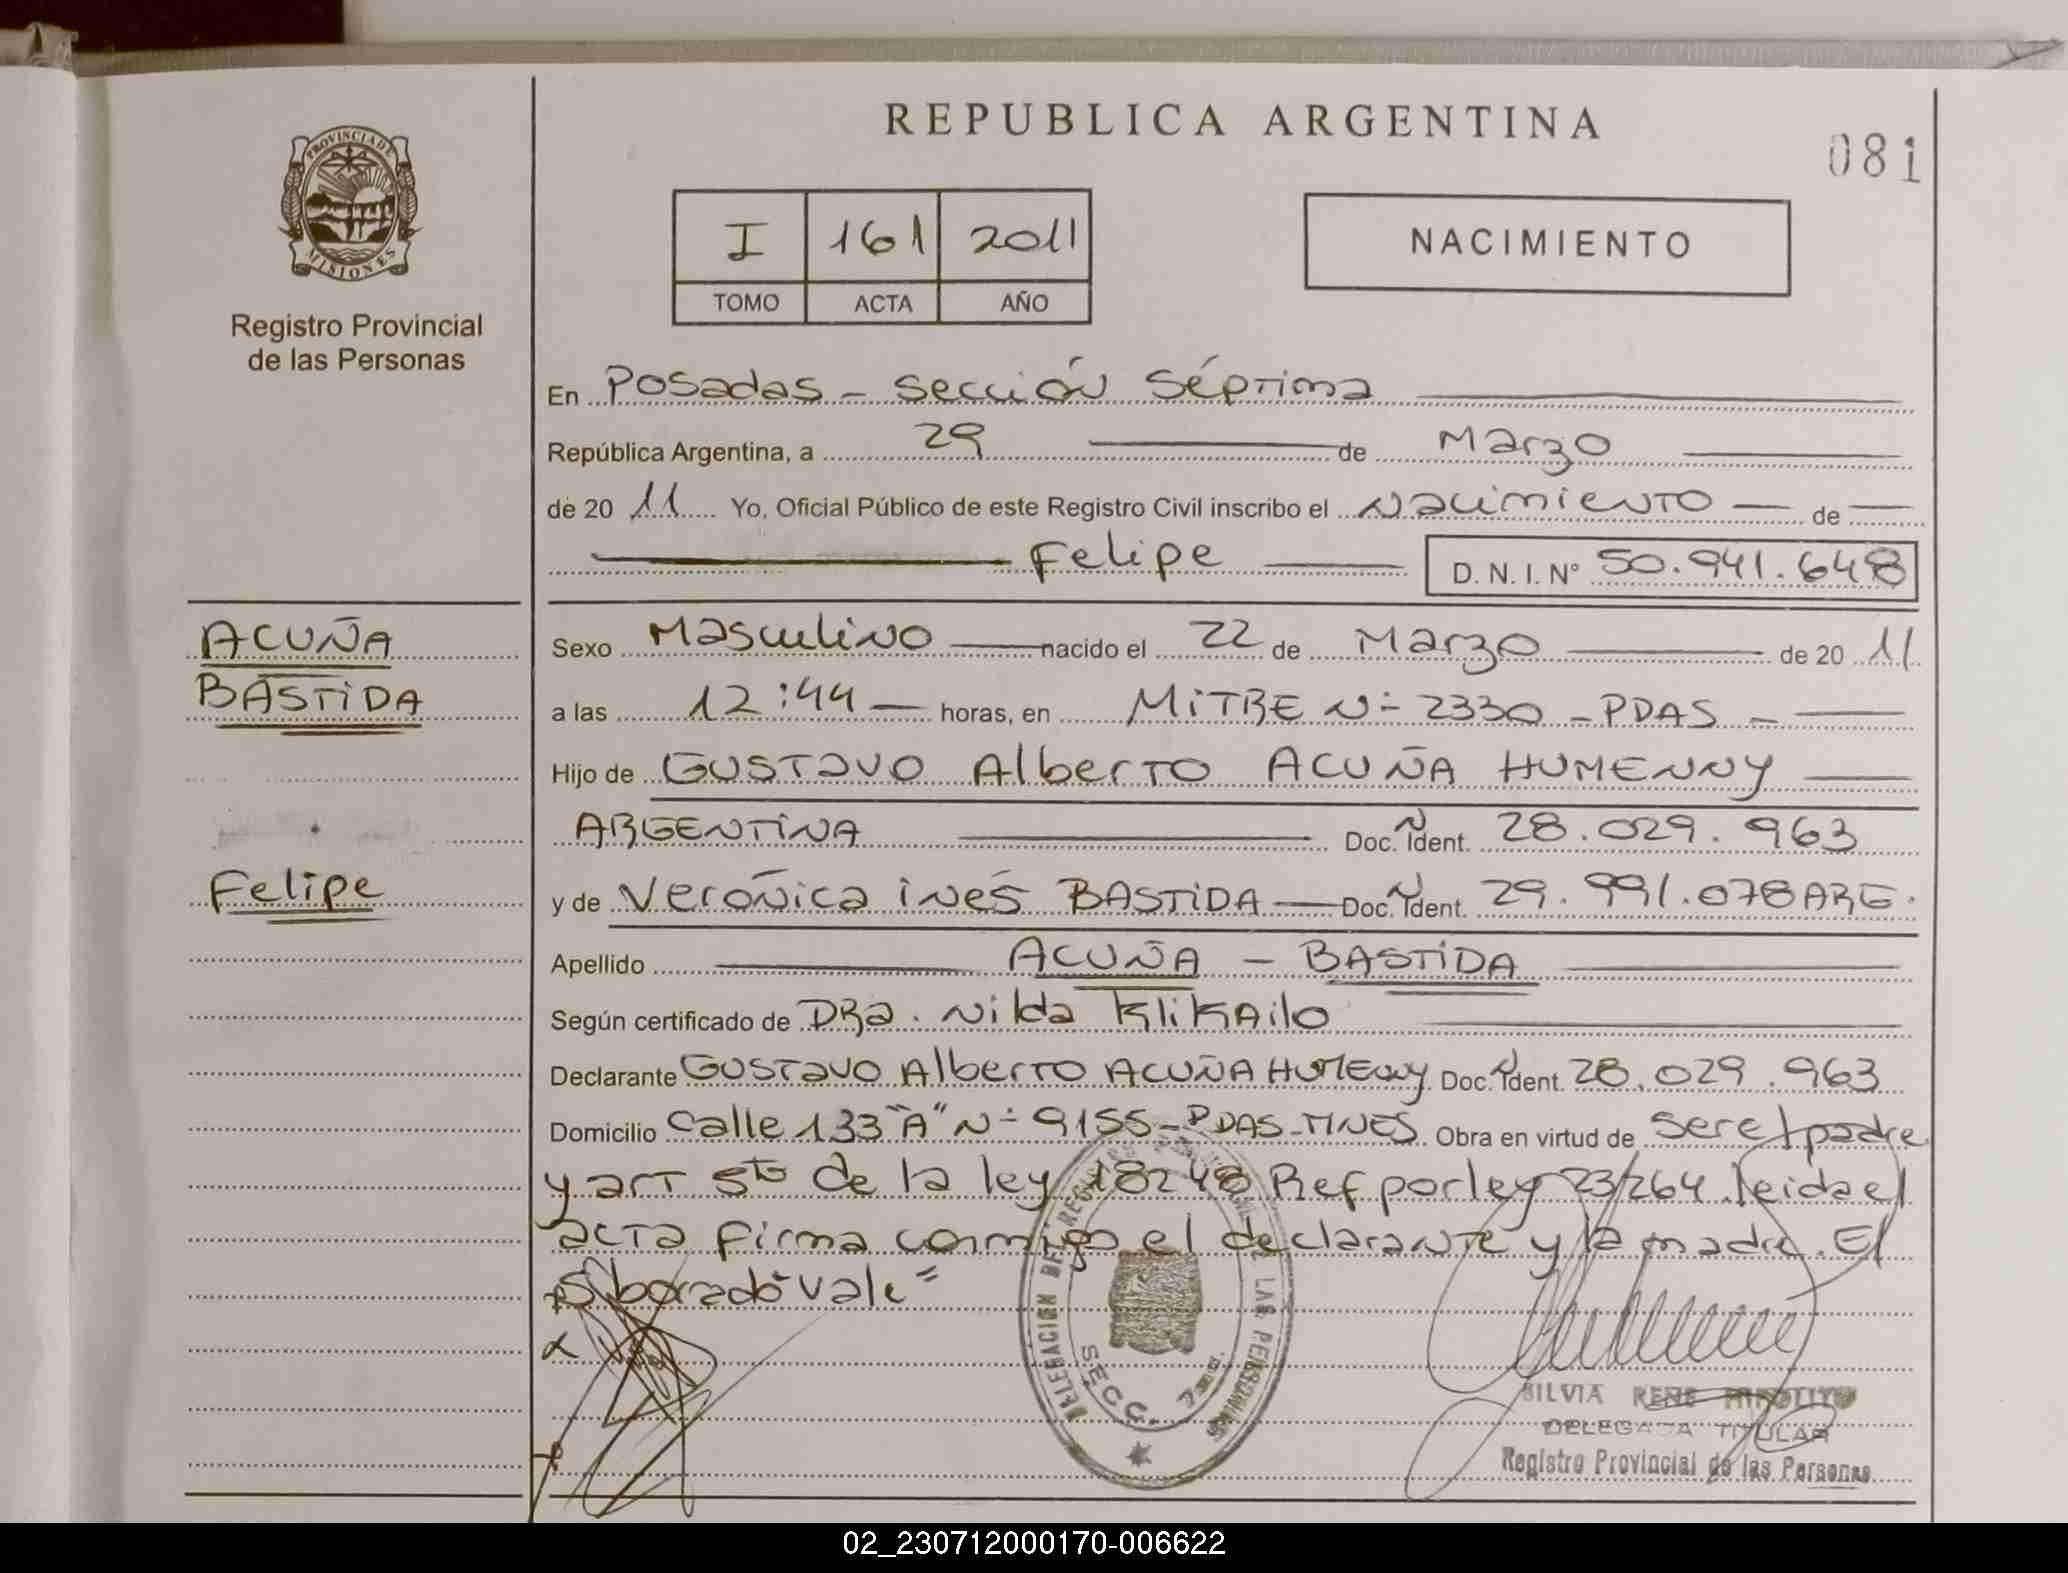 REPUBLICA ARGENTINA
081
PROVINCIA DE
MISIONES
Registro Provincial
de las Personas
I 161 2011
TOMO ACTA AÑO
NACIMIENTO
En Posadas - Sección Séptima
República Argentina, a 29 de Marzo
de 20 11 Yo, Oficial Público de este Registro Civil inscribo el Nacimiento de
Felipe D. N. I. Nº 50.941.648
ACUÑA
BASTIDA
Felipe
Sexo Masculino nacido el 22 de Marzo de 20 11
a las 12:44 horas, en MITRE Nº 2330 - PDAS -
Hijo de GUSTAVO Alberto ACUÑA HUMENNY
ARGENTINA Doc. N Ident. 28.029.963
y de Verónica inés BASTIDA Doc. N Ident. 29.991.078 ARG.
Apellido ACUÑA - BASTIDA
Según certificado de DRa. Nilda KliKAilo
Declarante GUSTAVO Alberto ACUÑA HUMENNY Doc. N Ident. 28.029.963
Domicilio Calle 133 "A" Nº 9155 - PDAS - MNES Obra en virtud de ser el padre
y art 5to de la ley 18248 Ref por ley 23264. leida el
acta firma conmigo el declarante y la madre. El
borrado vale"
DELEGACION DEL REGISTRO PROVINCIAL DE LAS PERSONAS
SECC. 7ma.
SILVIA RENE
DELEGADA TITULAR
Registro Provincial de las Personas
02_230712000170-006622